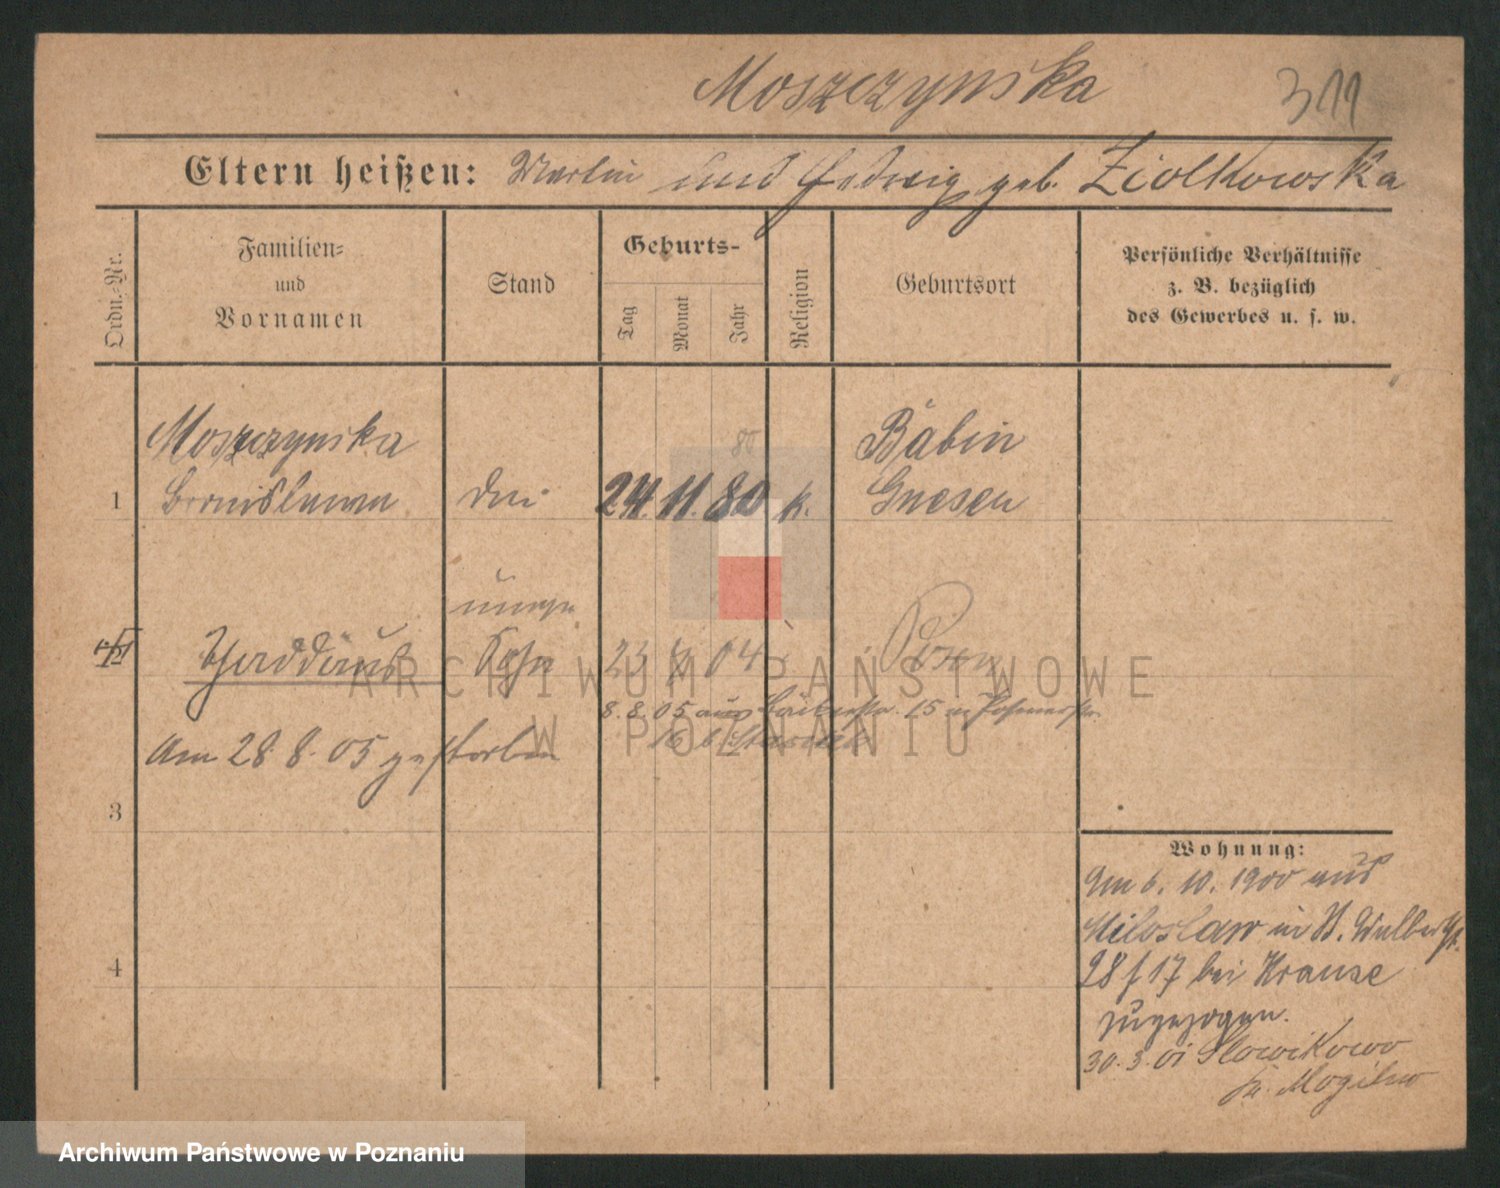 Moszczynska
311
Eltern heißen: Martin und Hedwig geb. Ziolkowska
Ordn.-Nr.
Familien-
und
Vornamen
Stand
Geburts-
Tag
Monat
Jahr
Religion
Geburtsort
Persönliche Verhältnisse
z. B. bezüglich
des Gewerbes u. s. w.
Moszczynska
80
Babin
1
Bronislawa
24. 11. 80
k.
Gnesen
Thaddäus
Sohn
23
04
Posen
8. 8. 05 aus
15
Am 28. 8. 05 gestorben
3
Wohnung:
Am 6. 10. 1900 aus
Miloslaw in
28 f 17 bei Krause
4
zugezogen.
30. 3. 01 Slowikowo
Kr. Mogilno
ARCHIWUM PAŃSTWOWE
W POZNANIU
Archiwum Państwowe w Poznaniu